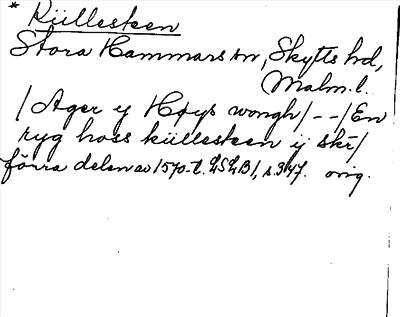 * Küllesteen
Stora Hammars sn, Skytts hd,
Malm.l.
/Ager ij Høys wongh/--/En
ryg hoss küllesteen ij skr/
förra delen av 1570-t. LSLB1, s.347. orig.